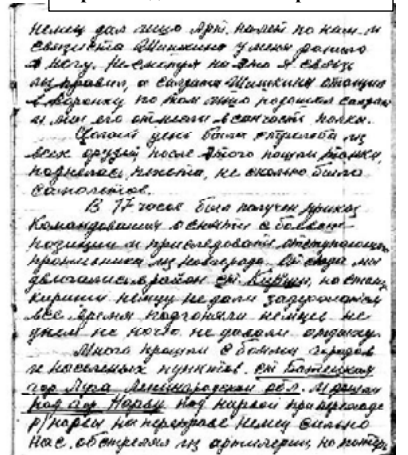 немец дал лишо Арт. налет по нам и
связиста Шишкина у меня ранило
в ногу. Не смотря на это я связь
исправил, а солдата Шишкина отащил
в воронку по том подошли солдаты
и мы его отнесли в санчасть полка.
Целый день была стрельба из
всех орудий после этого пошли танки,
поднялась пехота, не сколько было
самолетов.
В 17 часов был получен приказ
Командования о снятии с боевой
позиции и приследовать отступающего
противника из Новгорода. От сюда мы
двигались в район ст. Кириши, но станц.
кириши немцу не дали задержаться
все время подгоняли немцев не
днем не ночю не давали отдыху.
Много прошли с боями городов
и населеных пунктов. ст Батецкая
гор Луга Ленинградской обл. и дошли
под гор Нарву под нарвой при переходе
р/нарвы на переправе немец сильно
нас обстрелял из артилерии, но потерь